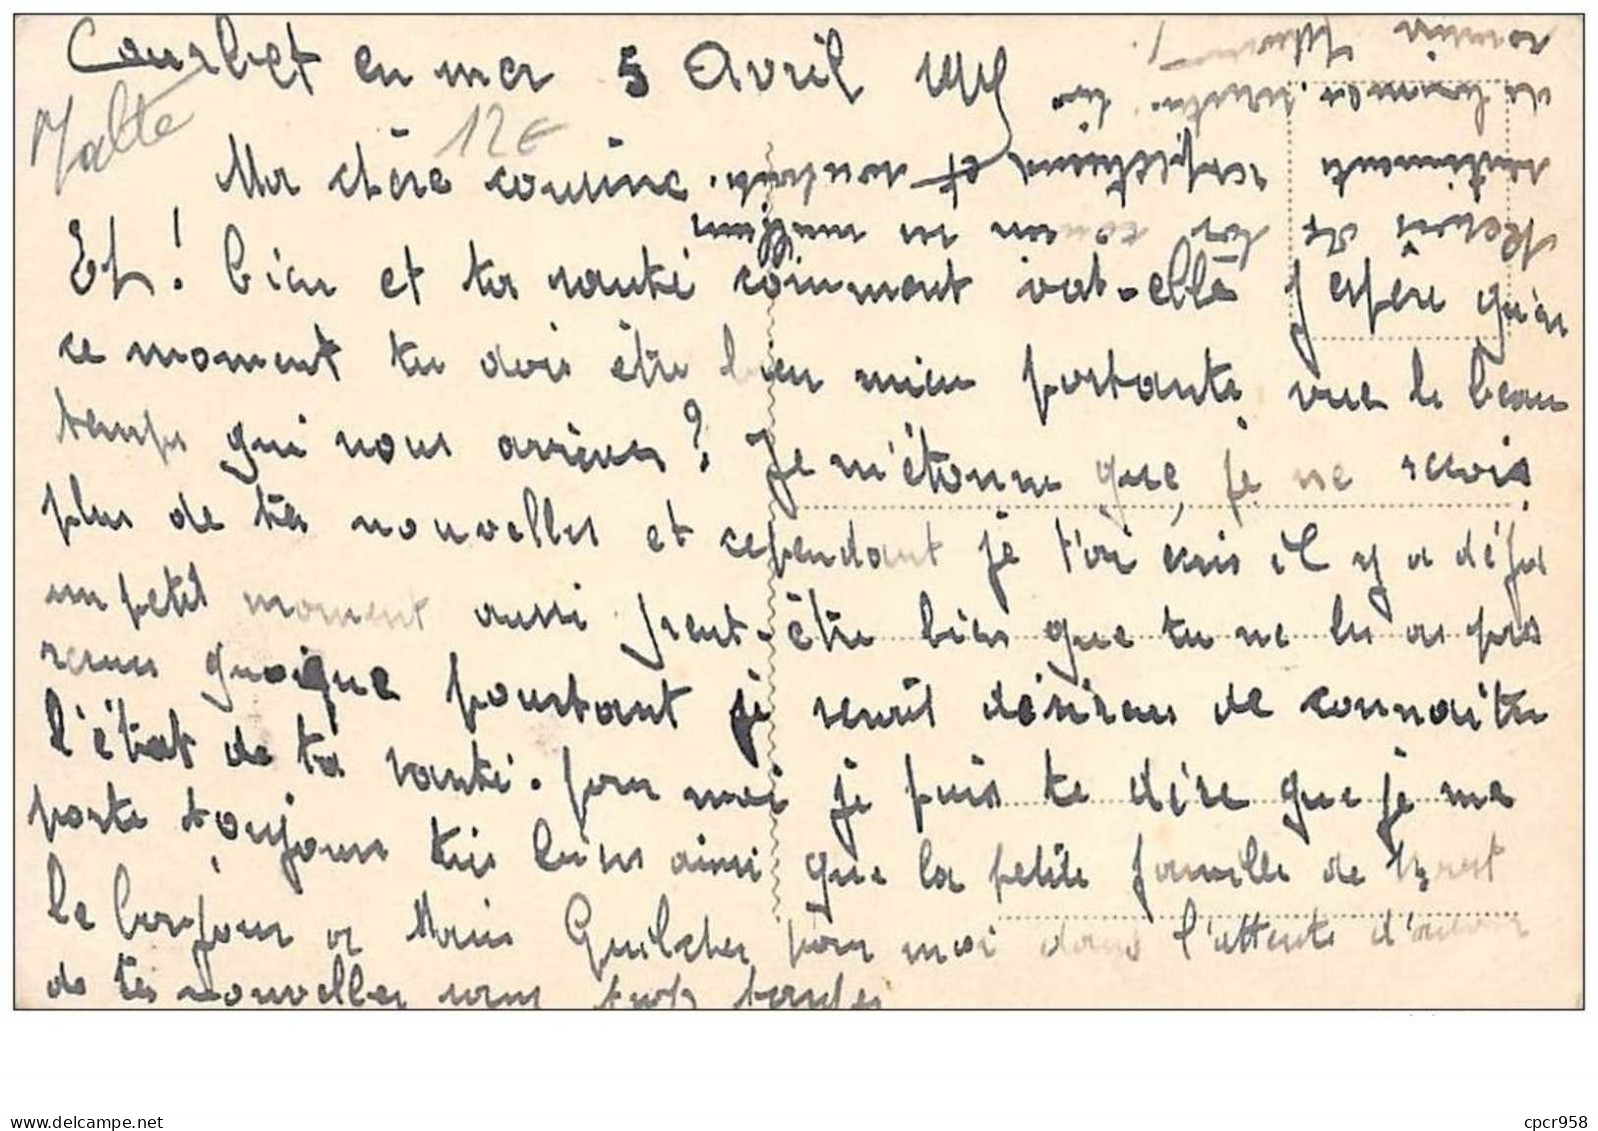 Courbet en mer 5 Avril 1915
Malte
12€
Ma chère cousine
Eh! bien et ta santé comment vat-elle j'espère qu'en
ce moment tu dois être bien mieu portante vue le beau
temps qui nous arrives? Je m'étonne que je ne recois
plus de tes nouvelles et cependant je t'ai écris il y a déja
un petit moment aussi peut-être bien que tu ne les as pas
recues quoique pourtant je serais désireus de connaitre
l'état de ta santé. pour moi je puis te dire que je me
porte toujours très biens ainsi que la petite famille de Brest
le bonjour a Marie Guilcher pour moi dans l'attente d'avoir
de tes nouvelles sans trop tarder
Recois de ton cousin les meilleurs
sentiments respectieux et